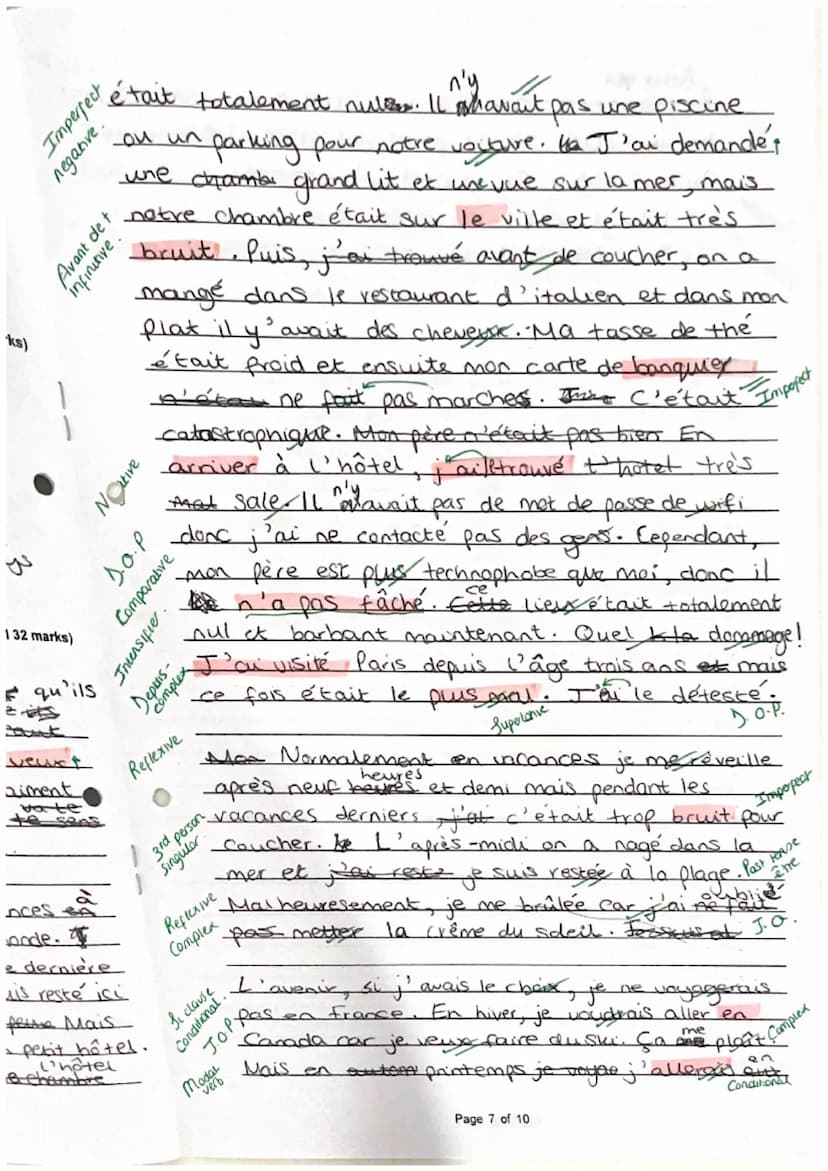 était totalement nul. Il n'y avait pas une piscine
ou un parking pour notre voiture. J'ai demandé
une grand lit et une vue sur la mer, mais
notre chambre était sur le ville et était très
bruit. Puis, j'ai trouvé avant de coucher, on a
mangé dans le restaurant d'italien et dans mon
plat il y'avait des cheveux. Ma tasse de thé
était froid et ensuite mon carte de banquier
ne fait pas marches. C'était
catastrophique. Mon père n'était pas bien En
arriver à l'hôtel, j'ai trouvé l'hotel très
sale. Il n'y avait pas de mot de passe de wifi
donc j'ai ne contacté pas des gens. Cependant,
mon père est plus technophobe que moi, donc il
n'a pas fâché. Cette ce lieux était totalement
nul et barbant maintenant. Quel dommage!
J'ai visité Paris depuis l'âge trois ans et mais
ce fois était le plus mal. J'ai le détesté.
Mon Normalement en vacances je me réveille
après neuf heures heures et demi mais pendant les
vacances derniers j'ai c'était trop bruit pour
coucher. L'après-midi on a nagé dans la
mer et j'ai reste je suis restée à la plage.
Malheuresement, je me brûlée car j'ai ne fait oublié
pas metter la crème du soleil.
L'avenir, si j'avais le choix, je ne voyagerais
pas en france. En hiver, je voudrais aller en
Canada car je veux faire du ski. Ça me plaît.
Mais en autom printemps je voyage j'allerais en
Imperfect
negative.
Avant de +
infinitive.
Imperfect
Negative
D.O.P
Comparative
Intensifier.
Depuis-
complex
Superlative
D.O.P.
Reflexive
Imperfect
3rd person
singular
Past tense
être
Reflexive
Complex
J.O.
Si clause
Conditional.
J.O.P.
Complex
Modal
verb
Conditional
ks)
132 marks)
qu'ils
veux
aiment
va te
te sens
nces en à
onde.
e dernière
uis resté ici
Mais
petit hôtel.
L'hôtel
e chambre
Page 7 of 10